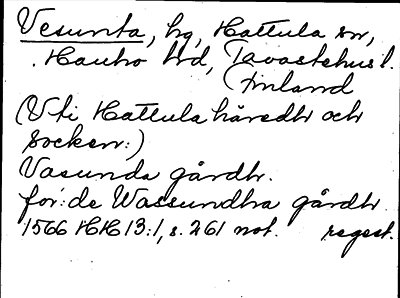 Vesunta, hg, Hattula sn,
Hauho hd, Tavastehus l.
(Finland
(Uti Hattula häredhr och
Sockenn:)
Vasunda gårdhr.
för:de Wassundha gårdhr
1566 HH 13:1, s. 261 not. regest.